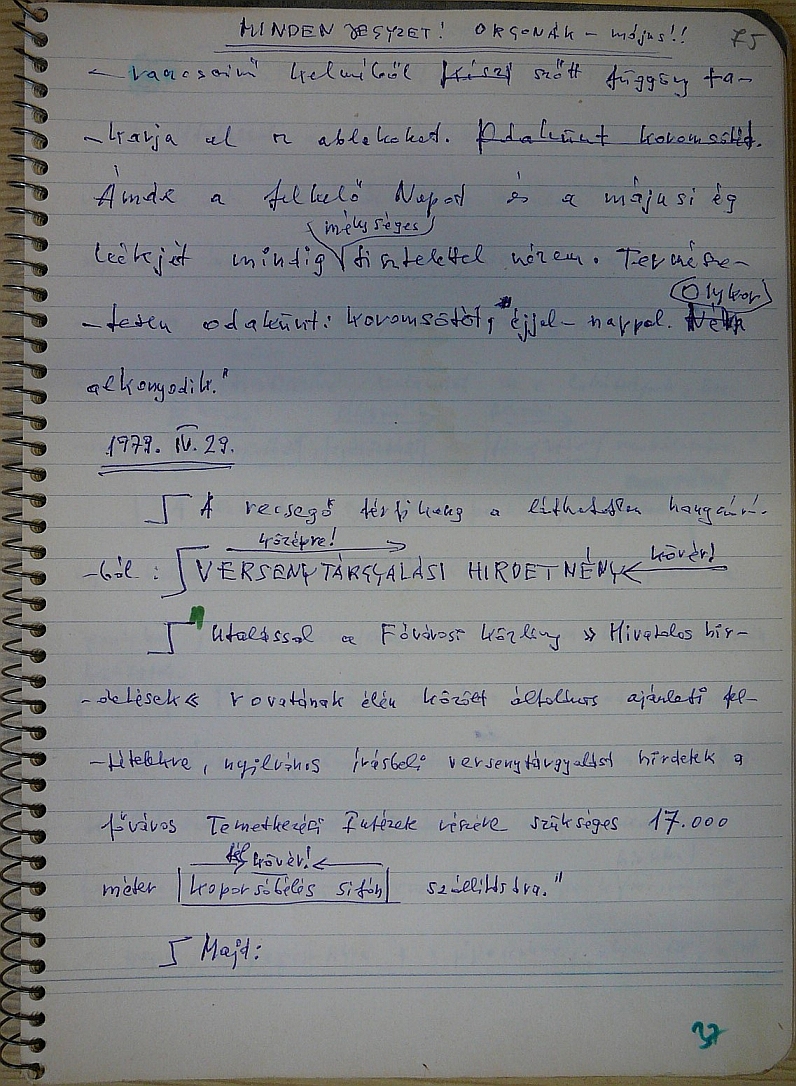 MINDEN JEGYZET! ORGONÁK – május!! 75
kelméből szőtt függöny ta-
-karja el az ablakokat. Odakünt koromsötét.
Ámde a felkelő Napot és a májusi ég
mélységes
kékjét mindig tisztelettel nézem. Természe-
Olykor
-tesen odakünt: koromsötét, éjjel-nappal.
alkonyodik."
1979. IV. 29.
A recsegő férfihang a láthatatlan hangszóró-
középre! kövér!
-ból: VERSENYTÁRGYALÁSI HIRDETMÉNY
"Utalással a Fővárosi Közlöny » Hivatalos hir-
-detések « rovatának élén közölt általános ajánlati fel-
-tételekre, nyilvános írásbeli versenytárgyalást hirdetek a
főváros Temetkezési Intézek részére szükséges 17.000
fél kövér!
méter koporsóbélés sifón szállítására."
Majd:
37